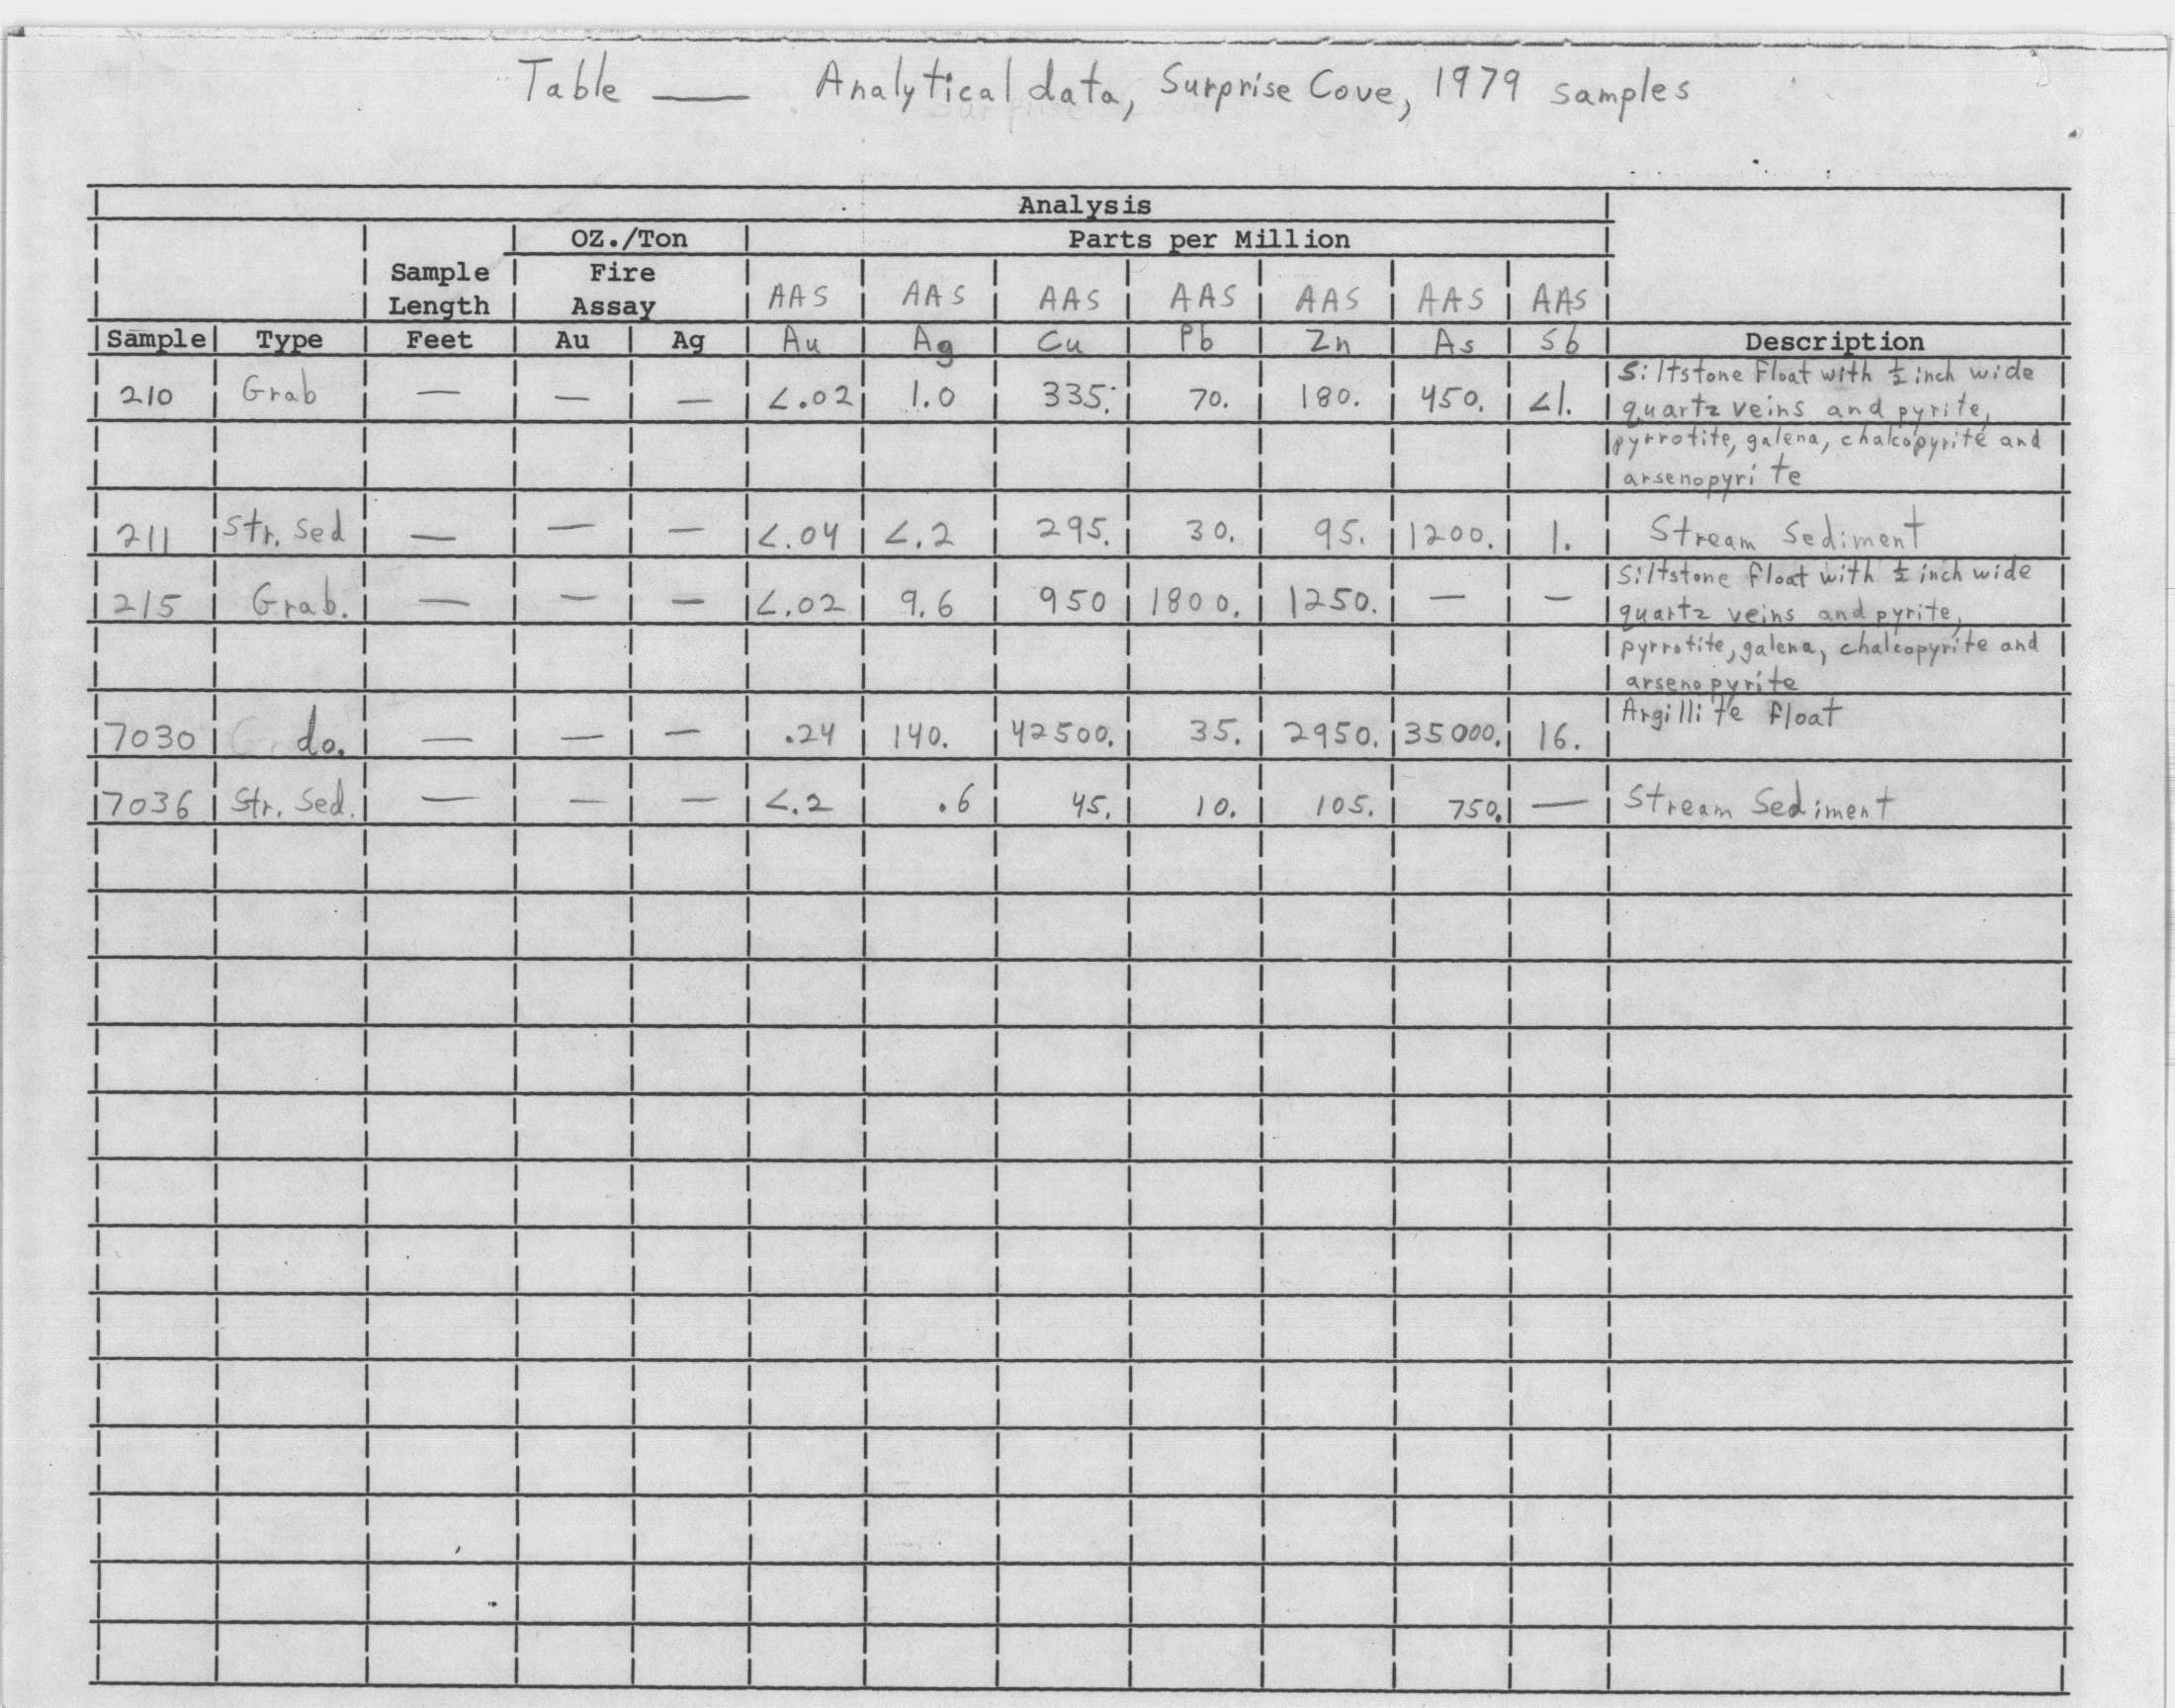 Table — Analytical data, Surprise Cove, 1979 samples
Analysis
OZ./Ton Parts per Million
Sample Fire
Length Assay AAS AAS AAS AAS AAS AAS AAS
Sample Type Feet Au Ag Au Ag Cu Pb Zn As Sb Description
Siltstone float with ½ inch wide
210 Grab — — — <.02 1.0 335. 70. 180. 450. <1. quartz veins and pyrite,
pyrrotite, galena, chalcopyrite and
arsenopyrite
211 Str. Sed — — — <.04 <.2 295. 30. 95. 1200. 1. Stream Sediment
Siltstone float with ½ inch wide
215 Grab. — — — <.02 9.6 950 1800. 1250. — — quartz veins and pyrite,
pyrrotite, galena, chalcopyrite and
arsenopyrite
7030 do. — — — .24 140. 42500. 35. 2950. 35000. 16. Argillite float
7036 Str. Sed. — — — <.2 .6 45. 10. 105. 750. — Stream Sediment